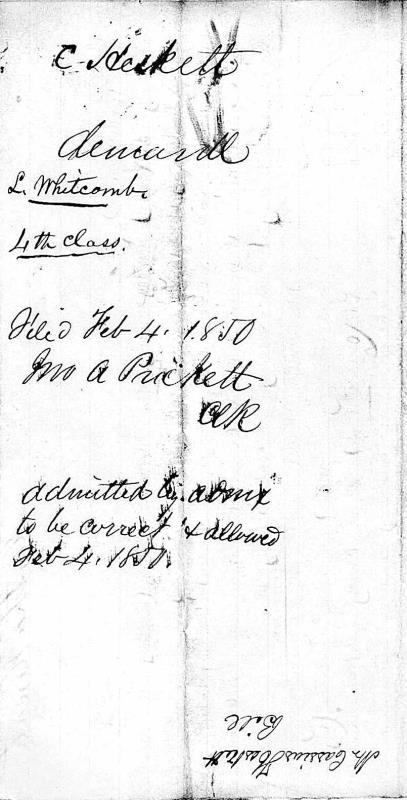 C Heskett
demand
L. Whitcomb.
4th Class.
Filed Feb 4. 1850
Jno A Prickett
Clk
admitted by admx
to be correct & allowed
Feb 4. 1850.
Mr Cassius Heskett
Bill